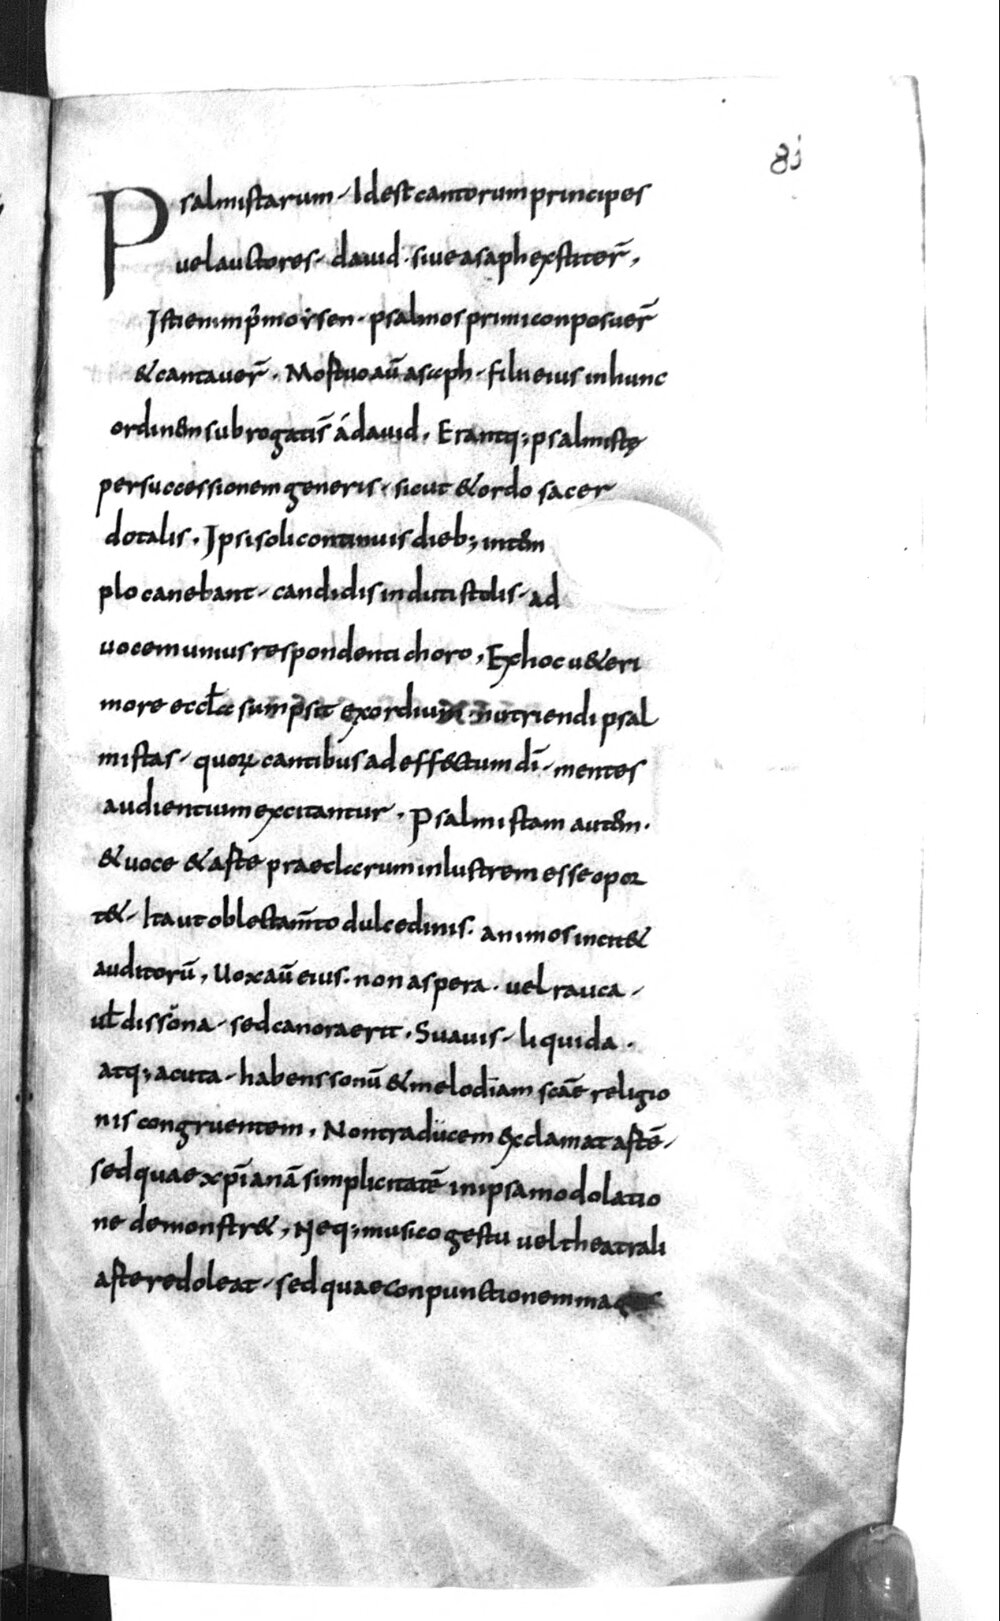 81
Psalmistarum · Id est cantorum principes
vel auctores · dauid · siue asaph exstiter̄,
Isti enim p̄ morsen · psalmos primi conposuer̄
& cantauer̄ · Mortuo aū asaph · filii eius in hunc
ordinem subrogati s̄ á dauid, Erantq; psalmistę
per successionem generis · sicut & ordo sacer
dotalis, Ipsi soli continuis dieb; in tem
plo canebant · candidis induti stolis · ad
uocem unius respondenti choro, Ex hoc u&eri
more eccła sumpsit exordium nutriendi psal
mistas · quoꝝ cantibus ad effectum dī · mentes
audientium excitantur · Psalmistam autem ·
& uoce & arte praeclarum inlustrem esse opor
t& · Ita ut oblectam̄to dulcedinis · animos incit&
auditorū, Uox aū eius · non aspera · vel rauca ·
uł dissona · sed canora erit · Suauis · liquida ·
atq; acuta · habens sonū & melodiam scāe religio
nis congruentem, Non tradücem exclamat artē ·
sed quae xp̄ianā simplicitatē in ipsa modolatio
ne demonstr&, Neq; musico gestu vel theatrali
arte redoleat · sed quae conpunctionem